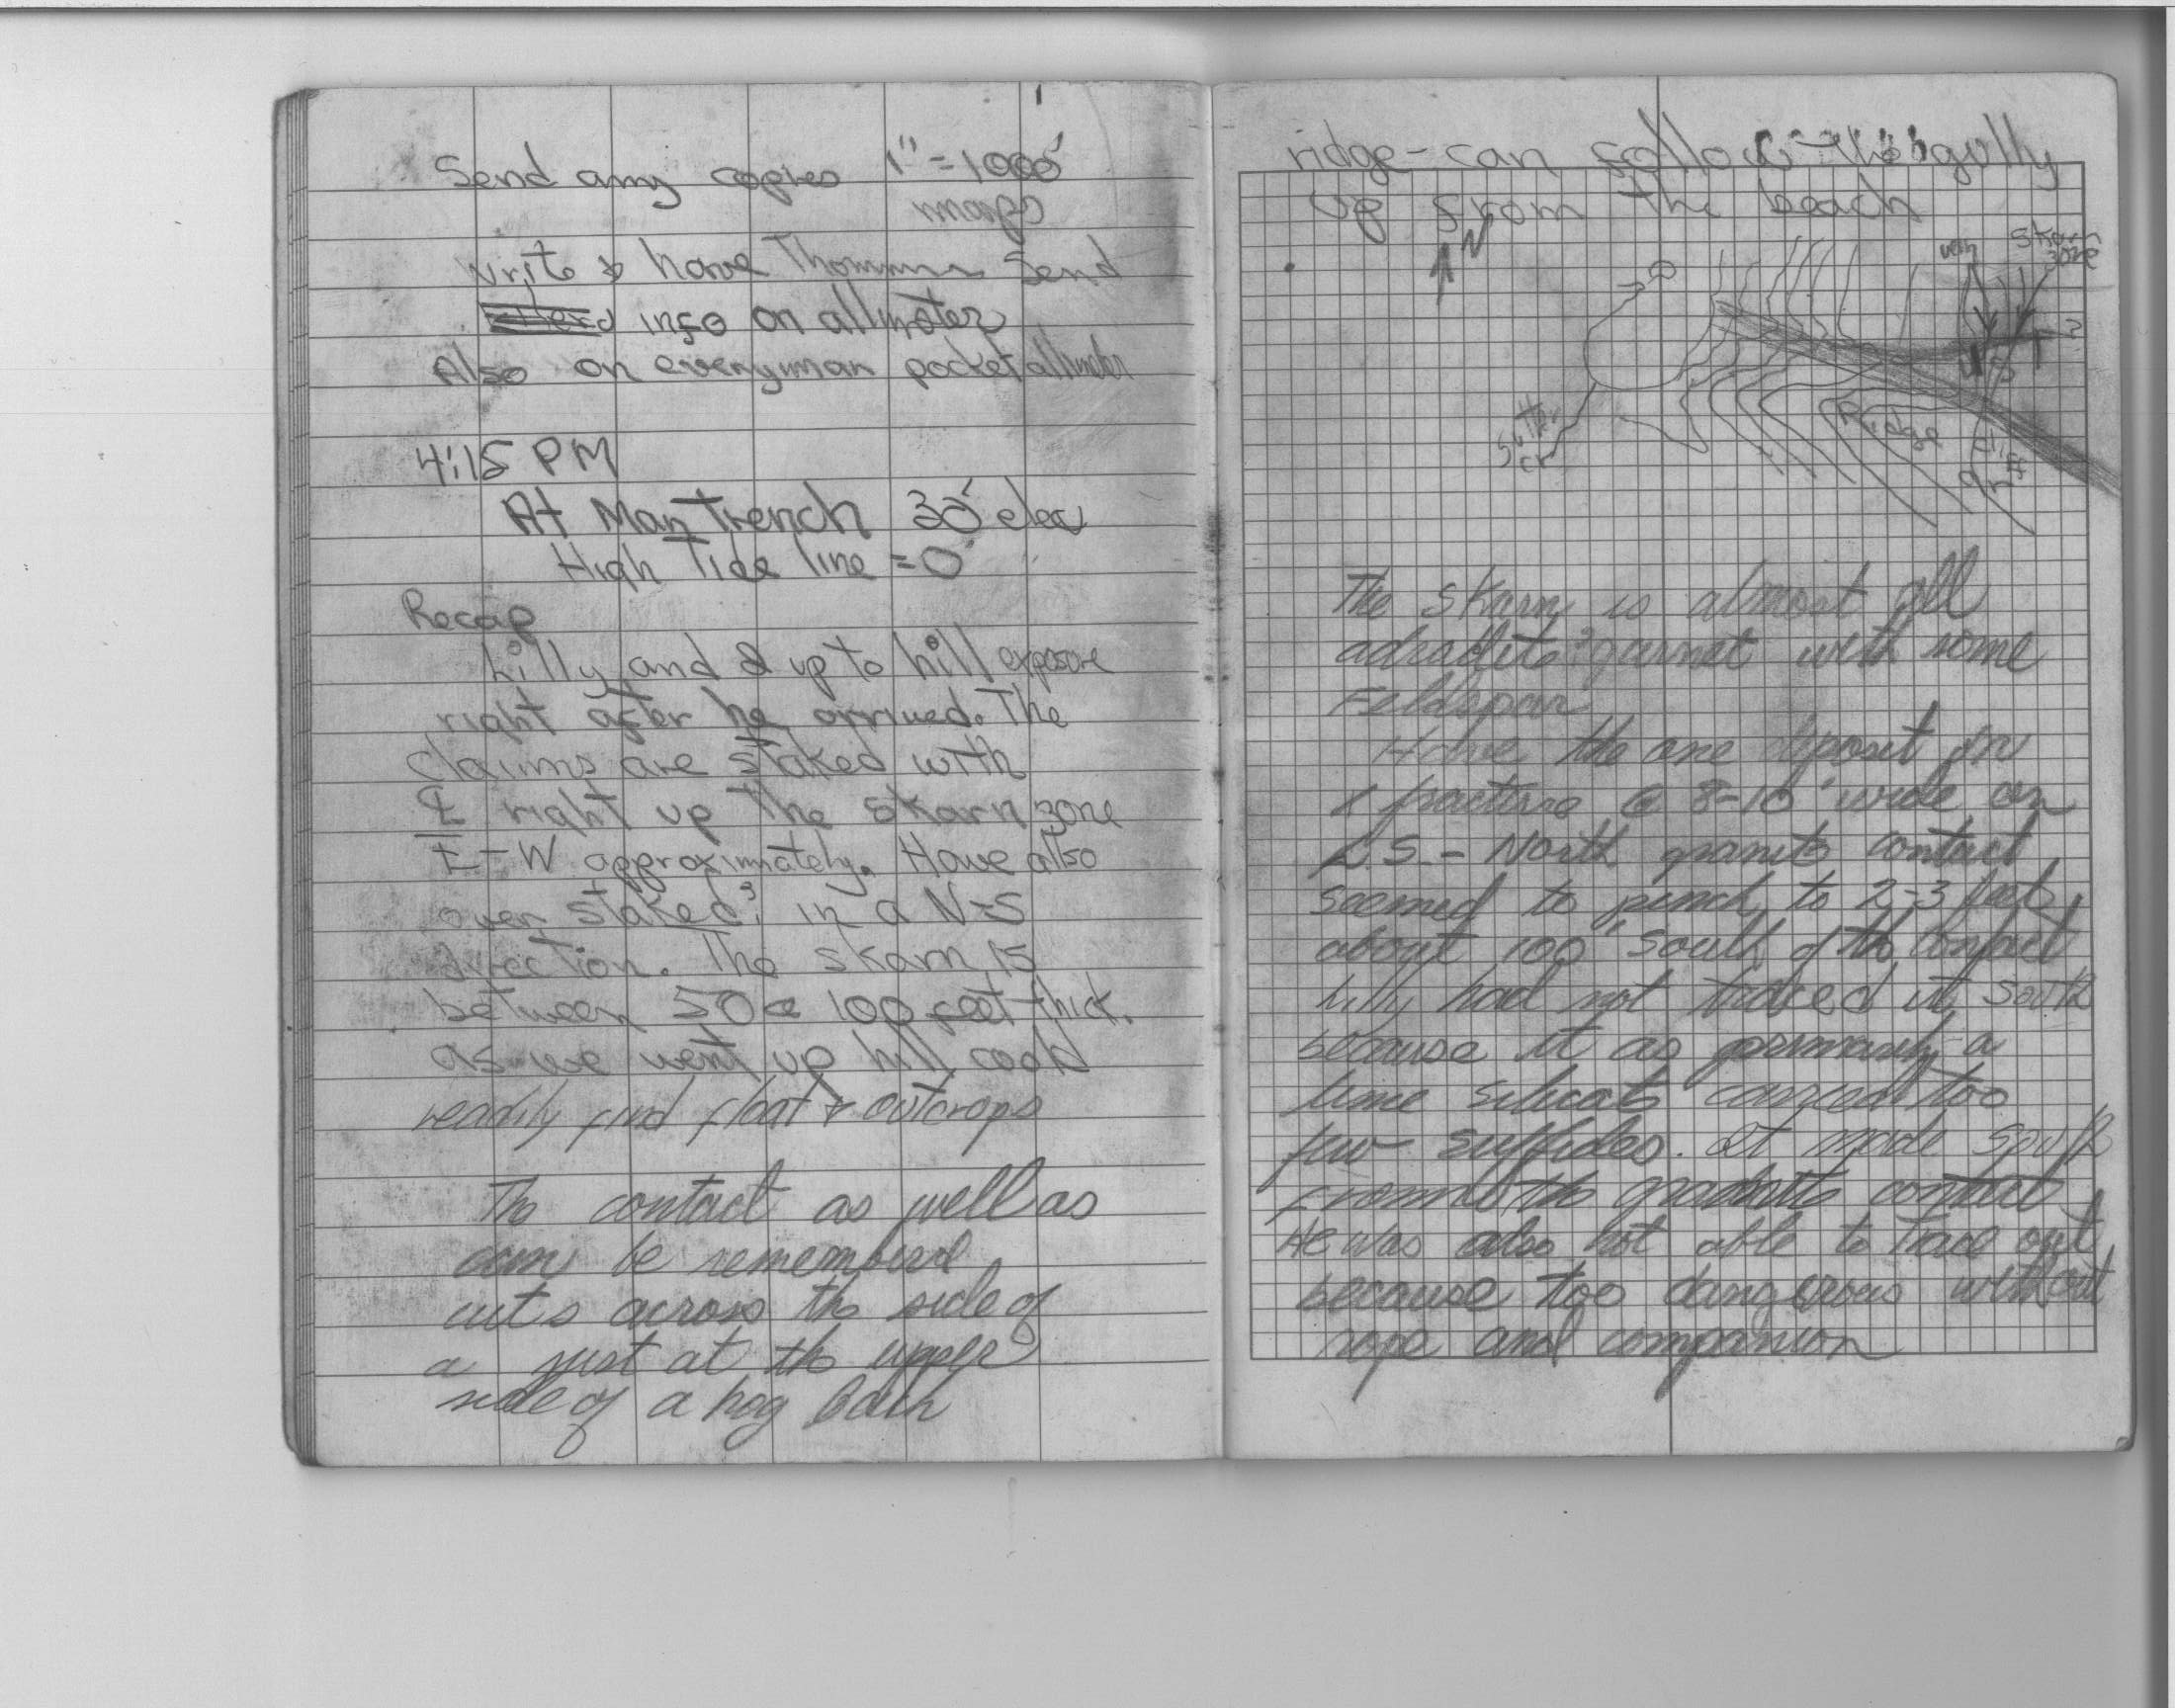 Send any copies 1" = 1000'
maps
write & have Thomma send
info on altimeter
Also on everyman pocket altimeter
4:15 PM
At Man Trench 30' elev
High Tide line = 0'
Recap
Lilly and I up to hill exposure
right after he arrived. The
claims are staked with
℄ right up the skarn zone
E-W approximately. Have also
over staked? in a N-S
direction. The skarn is
between 50 @ 100 feet thick.
as we went up hill could
readily find float & outcrops
The contact as well as
can be remembered
cuts across the side of
a just at the upper
side of a hog back
ridge - can follow the gully
up from the beach
N
vein skarn
zone
?
Ridge
The skarn is almost all
adradite? garnet with some
Feldspar
Have the one deposit on
x fracture @ 8-10' wide on
LS - North granite contact
seemed to pinch to 2-3 feet
about 100' south of the contact
Lilly had not traced it south
because it as primarily a
lime silicate carried too
few sulfides. It made south
from the contact
He was also not able to trace out
because too dangerous without
rope and companion